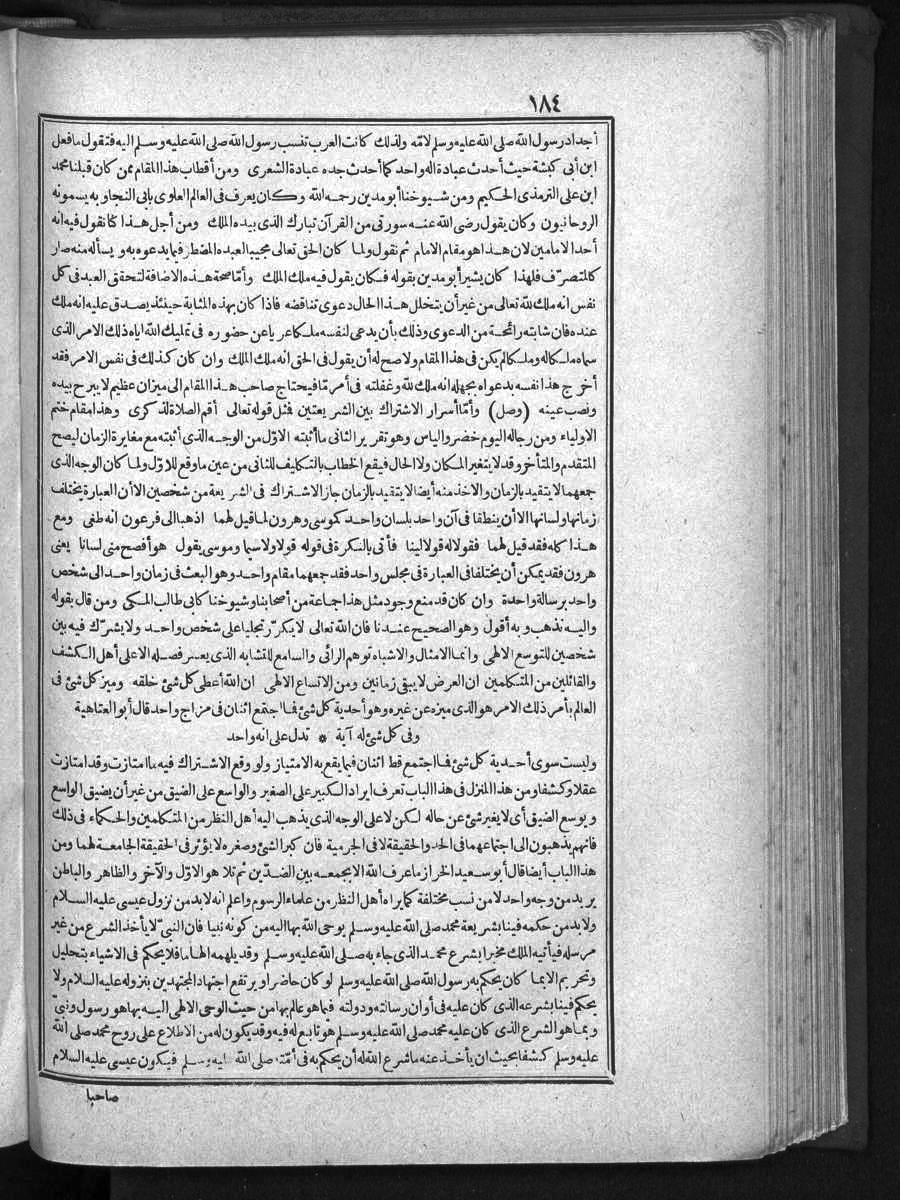 ١٨٤
أجداد رسول الله صلى الله عليه وسلم لامّه ولذلك كانت العرب تنسب رسول الله صلى الله عليه وسلم اليه فتقول ما فعل
ابن أبى كبشة حيث أحدث عبادة اله واحد كما أحدث جده عبادة الشعرى ومن أقطاب هذا المقام ممن كان قبلنا محمد
ابن على الترمذى الحكيم ومن شيوخنا أبو مدين رحمه الله وكان يعرف فى العالم العلوى بابى النجا وبه يسمونه
الروحانيون وكان يقول رضى الله عنه سورتى من القرآن تبارك الذى بيده الملك ومن أجل هذا كنا نقول فيه انه
أحد الامامين لان هذا هو مقام الامام ثم نقول ولما كان الحق تعالى مجيبا لعبده المضطر فيما يدعوه به ويسأله منه صار
كالمتصرّف فلهذا كان يشير أبو مدين بقوله فكان يقول فيه ملك الملك وأمّا صحة هذه الاضافة لتحقق العبد فى كل
نفس انه ملك لله تعالى من غير أن يتخلل هذا الحال دعوى تناقضه فاذا كان بهذه المثابة حينئذ يصدق عليه انه ملك
عنده فان شابته رائحة من الدعوى وذلك بأن يدعى لنفسه ملكا عريا عن حضوره فى تمليك الله اياه ذلك الامر الذى
سماه ملكا له وملكا لم يكن فى هذا المقام ولا صح له أن يقول فى الحق انه ملك الملك وان كان كذلك فى نفس الامر فقد
أخرج هذا نفسه بدعواه بجهله انه ملك لله وغفلته فى أمر مّا فيحتاج صاحب هذا المقام الى ميزان عظيم لا يبرح بيده
ونصب عينه (وصل) وأمّا أسرار الاشتراك بين الشريعتين فمثل قوله تعالى أقم الصلاة لذكرى وهذا مقام ختم
الاولياء ومن رجاله اليوم خضر والياس وهو تقرير الثانى ما أثبته الاوّل من الوجه الذى أثبته مع مغايرة الزمان ليصح
المتقدم والمتأخر وقد لا يتغير المكان ولا الحال فيقع الخطاب بالتكليف للثانى من عين ما وقع للاوّل ولما كان الوجه الذى
جمعهما لا يتقيد بالزمان والاخذ منه أيضا لا يتقيد بالزمان جاز الاشتراك فى الشريعة من شخصين الا أن العبارة يختلف
زمانها ولسانها الا أن ينطقا فى آن واحد بلسان واحد كموسى وهرون لما قيل لهما اذهبا الى فرعون انه طغى ومع
هذا كله فقد قيل لهما فقولا له قولا لينا فأتى بالنكرة فى قوله قولا ولا سيما وموسى يقول هو أفصح منى لسانا يعنى
هرون فقد يمكن أن يختلفا فى العبارة فى مجلس واحد فقد جمعهما مقام واحد وهو البعث فى زمان واحد الى شخص
واحد برسالة واحدة وان كان قد منع وجود مثل هذا جماعة من أصحابنا وشيوخنا كابى طالب المكى ومن قال بقوله
واليه نذهب وبه أقول وهو الصحيح عندنا فان الله تعالى لا يكرّر تجليا على شخص واحد ولا يشرّك فيه بين
شخصين للتوسع الالهى وانما الامثال والاشباه توهم الرائى والسامع للتشابه الذى يعسر فصله الا على أهل الكشف
والقائلين من المتكلمين ان العرض لا يبقى زمانين ومن الاتساع الالهى ان الله أعطى كل شئ خلقه وميز كل شئ فى
العالم بأمر ذلك الامر هو الذى ميزه عن غيره وهو أحدية كل شئ فما اجتمع اثنان فى مزاج واحد قال أبو العتاهية
وفى كل شئ له آية * تدل على انه واحد
وليست سوى أحدية كل شئ فما اجتمع قط اثنان فيما يقع به الامتياز ولو وقع الاشتراك فيه ما امتازت وقد امتازت
عقلا وكشفا ومن هذا المنزل فى هذا الباب تعرف ايراد الكبير على الصغير والواسع على الضيق من غير أن يضيق الواسع
ويوسع الضيق أى لا يغير شئ عن حاله لكن لا على الوجه الذى يذهب اليه أهل النظر من المتكلمين والحكماء فى ذلك
فانهم يذهبون الى اجتماعهما فى الحد والحقيقة لا فى الجرمية فان كبر الشئ وصغره لا يؤثر فى الحقيقة الجامعة لهما ومن
هذا الباب أيضا قال أبو سعيد الخراز ما عرف الله الا بجمعه بين الضدّين ثم تلا هو الاوّل والآخر والظاهر والباطن
يريد من وجه واحد لا من نسب مختلفة كما يراه أهل النظر من علماء الرسوم واعلم انه لابد من نزول عيسى عليه السلام
ولابد من حكمه فينا بشريعة محمد صلى الله عليه وسلم يوحى الله بها اليه من كونه نبيا فان النبىّ لا يأخذ الشرع من غير
مرسله فيأتيه الملك مخبرا بشرع محمد الذى جاء به صلى الله عليه وسلم وقد يلهمه الهاما فلا يحكم فى الاشياء بتحليل
وتحريم الا بما كان يحكم به رسول الله صلى الله عليه وسلم لو كان حاضرا ويرتفع اجتهاد المجتهدين بنزوله عليه السلام ولا
يحكم فينا بشرعه الذى كان عليه فى أوان رسالته ودولته فيما هو عالم بها من حيث الوحى الالهى اليه بها هو رسول ونبىّ
وبما هو الشرع الذى كان عليه محمد صلى الله عليه وسلم هو تابع له فيه وقد يكون له من الاطلاع على روح محمد صلى الله
عليه وسلم كشفا بحيث ان يأخذ عنه ما شرع الله له أن يحكم به فى أمّته صلى الله عليه وسلم فيكون عيسى عليه السلام
صاحبا